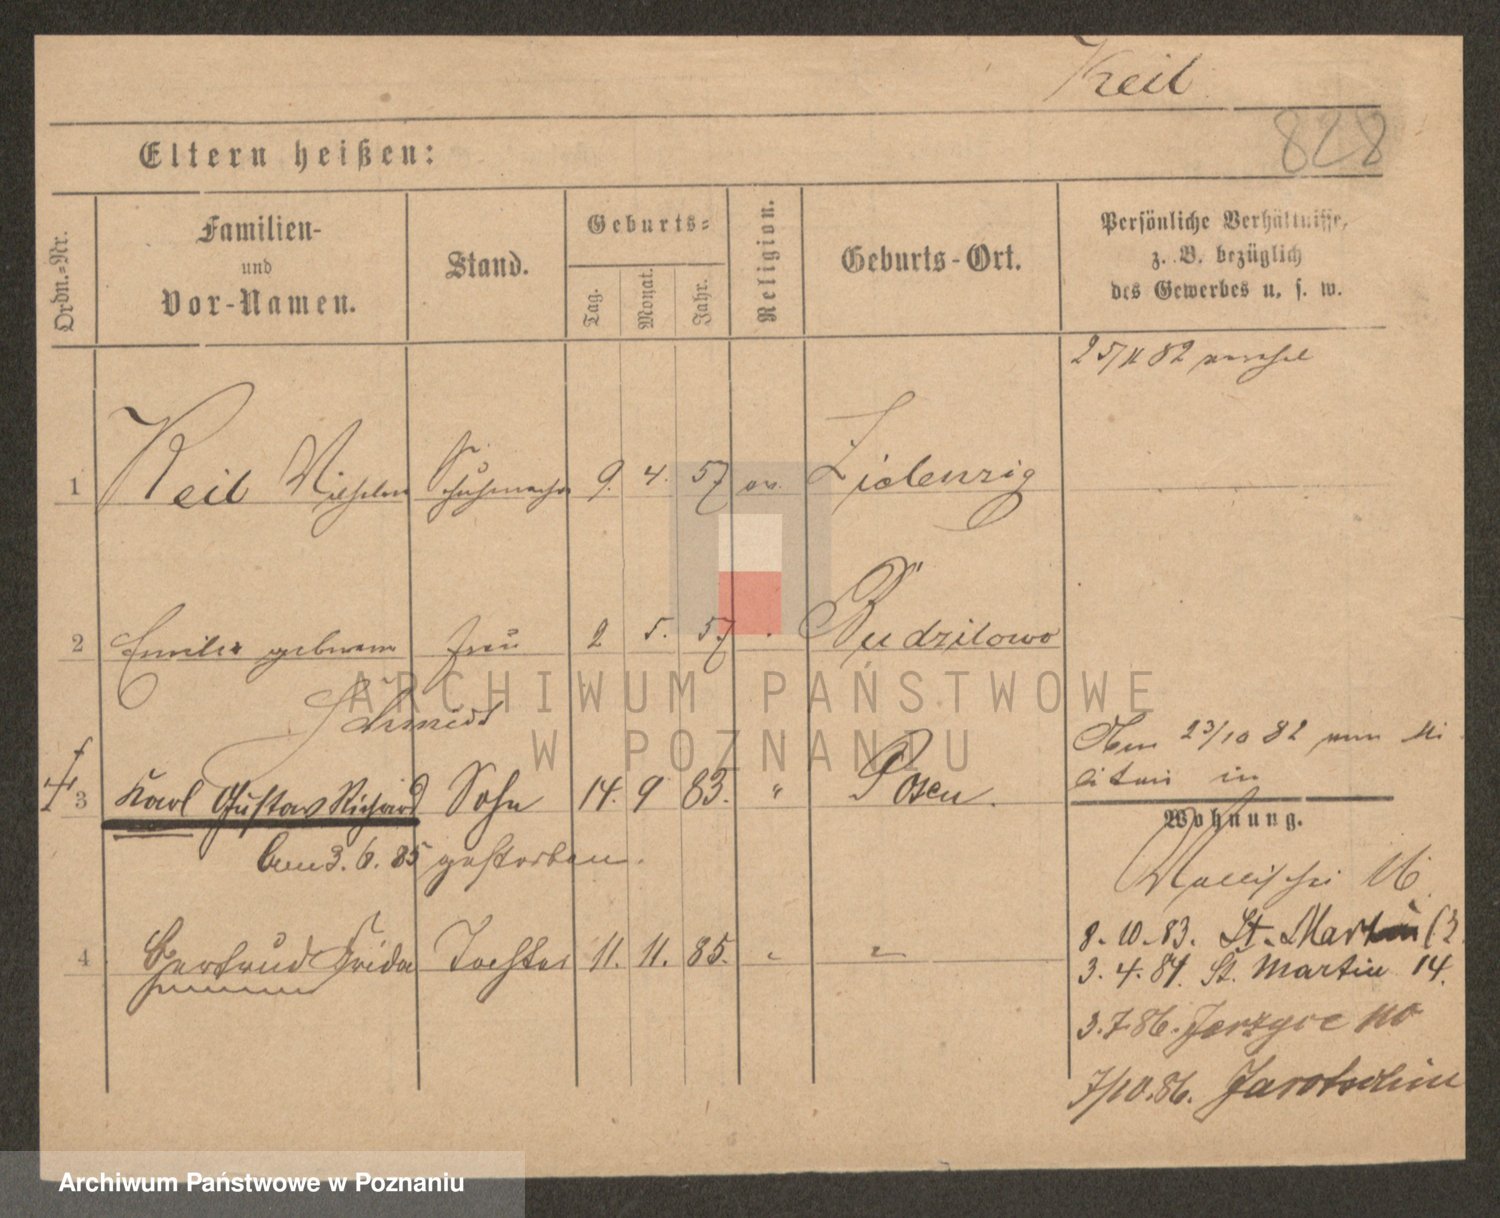 Keil
828
Eltern heißen:
Ordn.=Nr.
Familien-
und
Vor-Namen.
Stand.
Geburts=
Tag.
Monat.
Jahr.
Religion.
Geburts-Ort.
Persönliche Verhältnisse,
z. B. bezüglich
des Gewerbes u. s. w.
25/11 82
1 Keil Wilhelm Schuhmacher 9. 4. 57 ev. Zielenzig
2 Emilie geborene Frau 2 5. 57 Budzilowo
Schmidt
Am 23/10 82 vom Mi
litair in
† 3 Karl Gustav Richard Sohn 14. 9 83. " Posen.
Wohnung.
am 3. 6. 85 gestorben.
Wallischei 16
8. 10. 83. St. Martin
4 Gertrud Frida Tochter 11. 11. 85. " "
3. 4. 84. St. Martin 14.
3. 7. 86. Jerzyce 110
7/10. 86. Jarotschin
ARCHIWUM PAŃSTWOWE
W POZNANIU
Archiwum Państwowe w Poznaniu